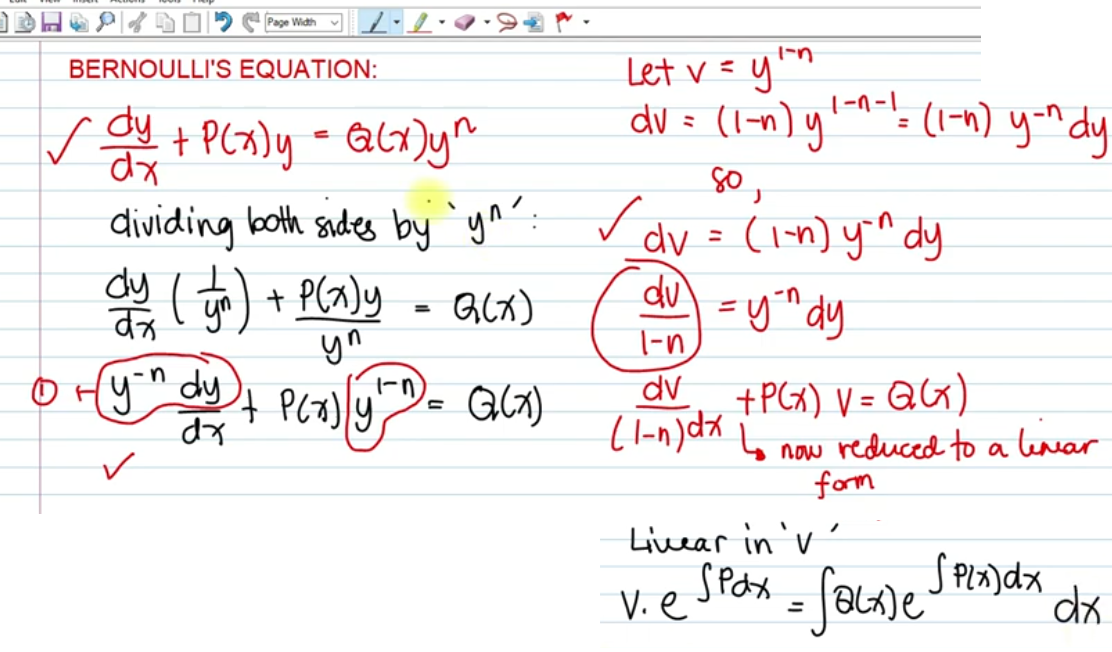 Page Width
BERNOULLI'S EQUATION:
dy/dx + P(x)y = Q(x)yⁿ
dividing both sides by 'yⁿ':
dy/dx (1/yⁿ) + P(x)y/yⁿ = Q(x)
① y⁻ⁿ dy/dx + P(x) y¹⁻ⁿ = Q(x)
Let v = y¹⁻ⁿ
dv = (1-n) y¹⁻ⁿ⁻¹ = (1-n) y⁻ⁿ dy
so,
dv = (1-n) y⁻ⁿ dy
dv/1-n = y⁻ⁿ dy
dv/(1-n)dx + P(x) v = Q(x)
↳ now reduced to a linear
form
Linear in 'v'
v. e^∫Pdx = ∫Q(x)e^∫P(x)dx dx